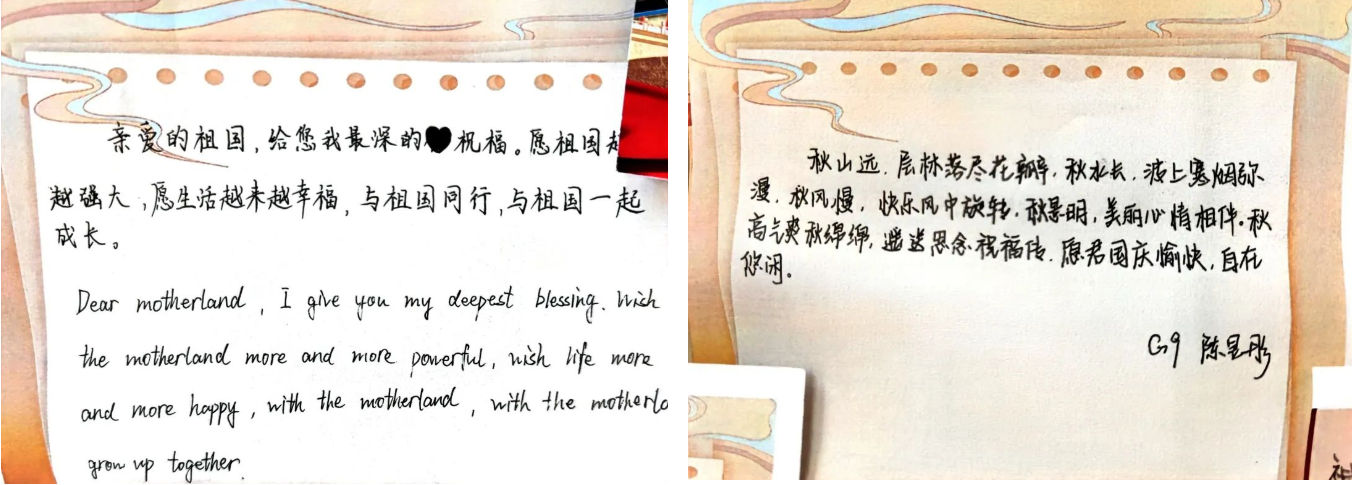 亲爱的祖国,给您我最深的♥祝福。愿祖国越
越强大,愿生活越来越幸福,与祖国同行,与祖国一起
成长。
Dear motherland, I give you my deepest blessing. Wish
the motherland more and more powerful, wish life more
and more happy, with the motherland, with the motherla
grow up together.
秋山远,层林落尽花瓣,秋水长,波上寒烟弥
漫,秋风慢,快乐风中旋转,秋景明,美丽心情相伴。秋
高气爽秋绵绵,遥送思念祝福传,愿君国庆愉快,自在
悠闲。
G9 陈昱彤